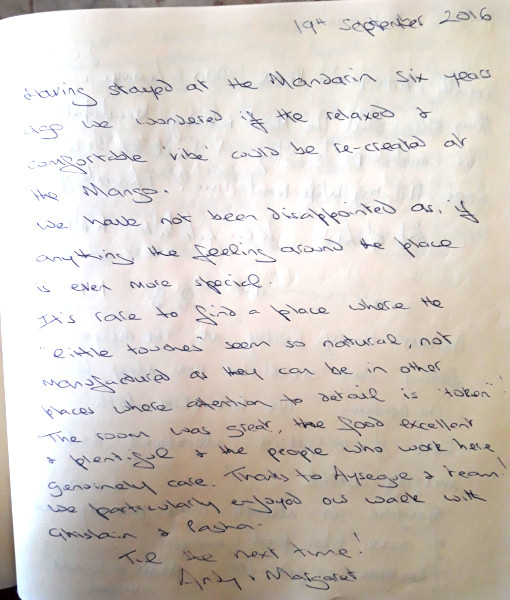 19th September 2016
Having stayed at the Mandarin six years
ago we wondered if the relaxed &
comfortable 'vibe' could be re-created at
the Mango.
We have not been disappointed as, if
anything the feeling around the place
is even more special.
It's rare to find a place where the
"little touches" seem so natural, not
manufactured as they can be in other
places where attention to detail is "token"!
The room was great, the food excellent
& plentiful & the people who work here
genuinely care. Thanks to Aysegul & team!
We particularly enjoyed our walk with
Ghislain & Pasha.
Til the next time!
Andy & Margaret